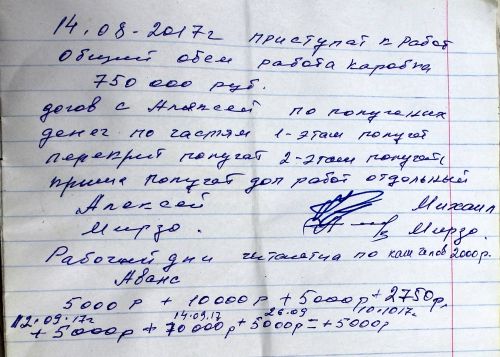 14.08-2017г приступат к работ
Общий обем работа каробка
750 000 руб.
догов с Аляксей по получених
денег по частям 1-этап получат
перекрит получат 2-этап получат
крыша получат доп работ отдольный
Алексей Михаил
Мирзо. Мирзо.
Рабочий дни читаетца по каш челов 2000р.
Аванс
5000р + 10000р + 5000р + 2750р,
12.09.17г 14.09.17 26.09 10.10.17г
+ 5000р + 70000р + 5000р = + 5000р